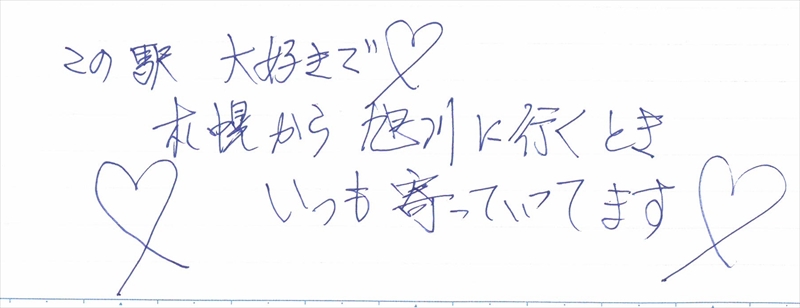 この駅 大好きで♡
札幌から旭川に行くとき
いつも寄っていってます